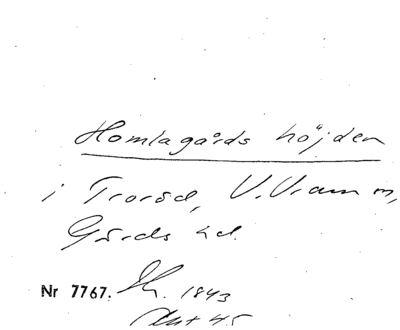 Homlagårds höjden
i Troröd, V. Vram m,
Gärds hd.
Nr 7767. Sk. 1843